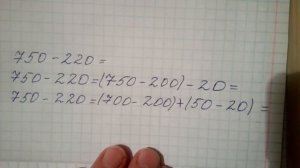 750 - 220 =
750 - 220 = (750 - 200) - 20 =
750 - 220 = (700 - 200) + (50 - 20) =